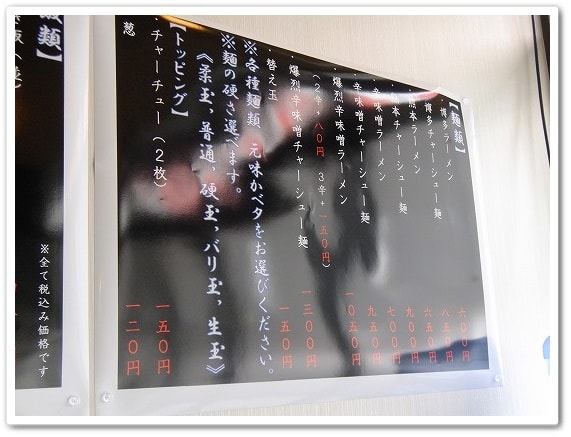 【麺類】
・博多ラーメン 六〇〇円
・博多チャーシュー麺 八五〇円
・熊本ラーメン 六五〇円
・熊本チャーシュー麺 九〇〇円
・辛味噌ラーメン 七〇〇円
・辛味噌チャーシュー麺 九五〇円
・爆烈辛味噌ラーメン 一〇五〇円
(2辛+八〇円 3辛+一五〇円)
・爆烈辛味噌チャーシュー麺 一三〇〇円
・替え玉 一五〇円
※各種麺類、元味かベタをお選びください。
※麺の硬さ選べます。
《柔玉、普通、硬玉、バリ玉、生玉》
【トッピング】
・チャーチュー(2枚) 一五〇円
葱 一二〇円
類】
※全て税込み価格です